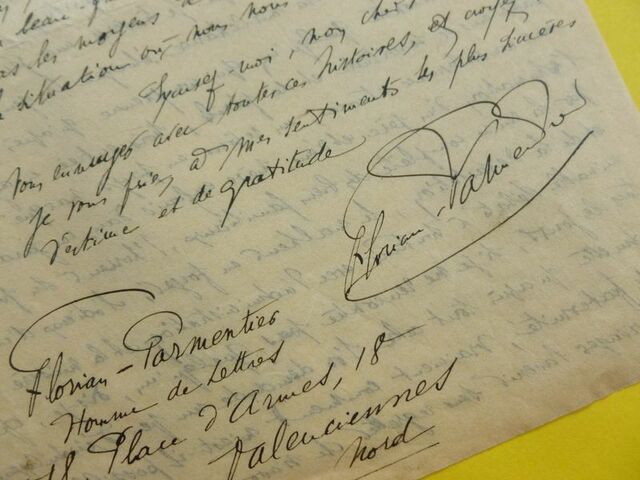 beau-
les moyens d
situation où nous nous
Excusez-moi, mon cher
vous ennuyer avec toutes ces histoires, et croyez
je vous prie, à mes sentiments les plus sincères
d'estime et de gratitude
Florian-Parmentier
Florian-Parmentier
Homme de Lettres
18, Place d'Armes, 18
Valenciennes
Nord